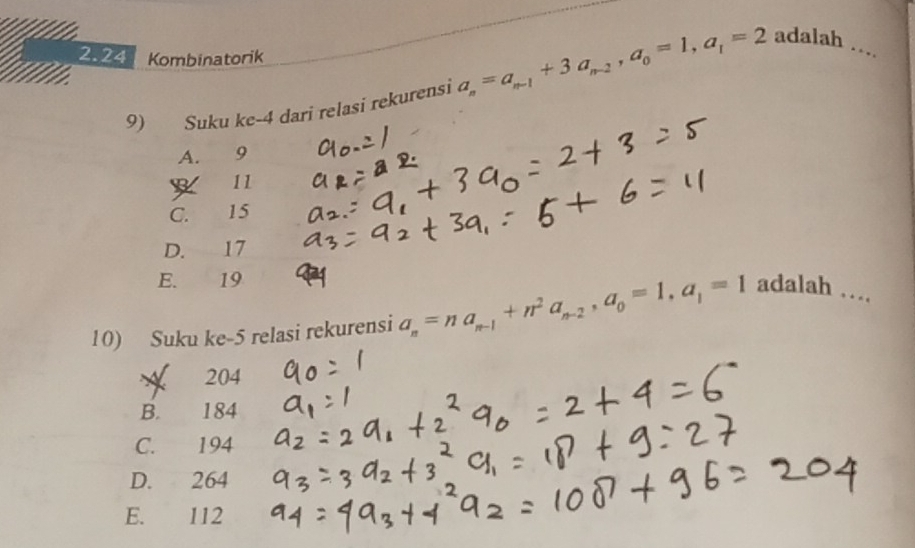 2.24 Kombinatorik
9) Suku ke-4 dari relasi rekurensi aₙ = aₙ₋₁ + 3 aₙ₋₂, a₀ = 1, a₁ = 2 adalah ....
A. 9
B. 11
C. 15
D. 17
E. 19
a₀ = 1
= 2
a₂ = a₁ + 3a₀ = 2 + 3 = 5
a₃ = a₂ + 3a₁ = 5 + 6 = 11
10) Suku ke-5 relasi rekurensi aₙ = n aₙ₋₁ + n² aₙ₋₂, a₀ = 1, a₁ = 1 adalah ....
A. 204
B. 184
C. 194
D. 264
E. 112
a₀ = 1
a₁ = 1
a₂ = 2a₁ + 2² a₀ = 2 + 4 = 6
a₃ = 3a₂ + 3² a₁ = 18 + 9 = 27
a₄ = 4a₃ + 4² a₂ = 108 + 96 = 204